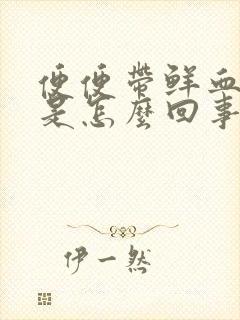 便便带鲜血
是怎麼回事
伊一然